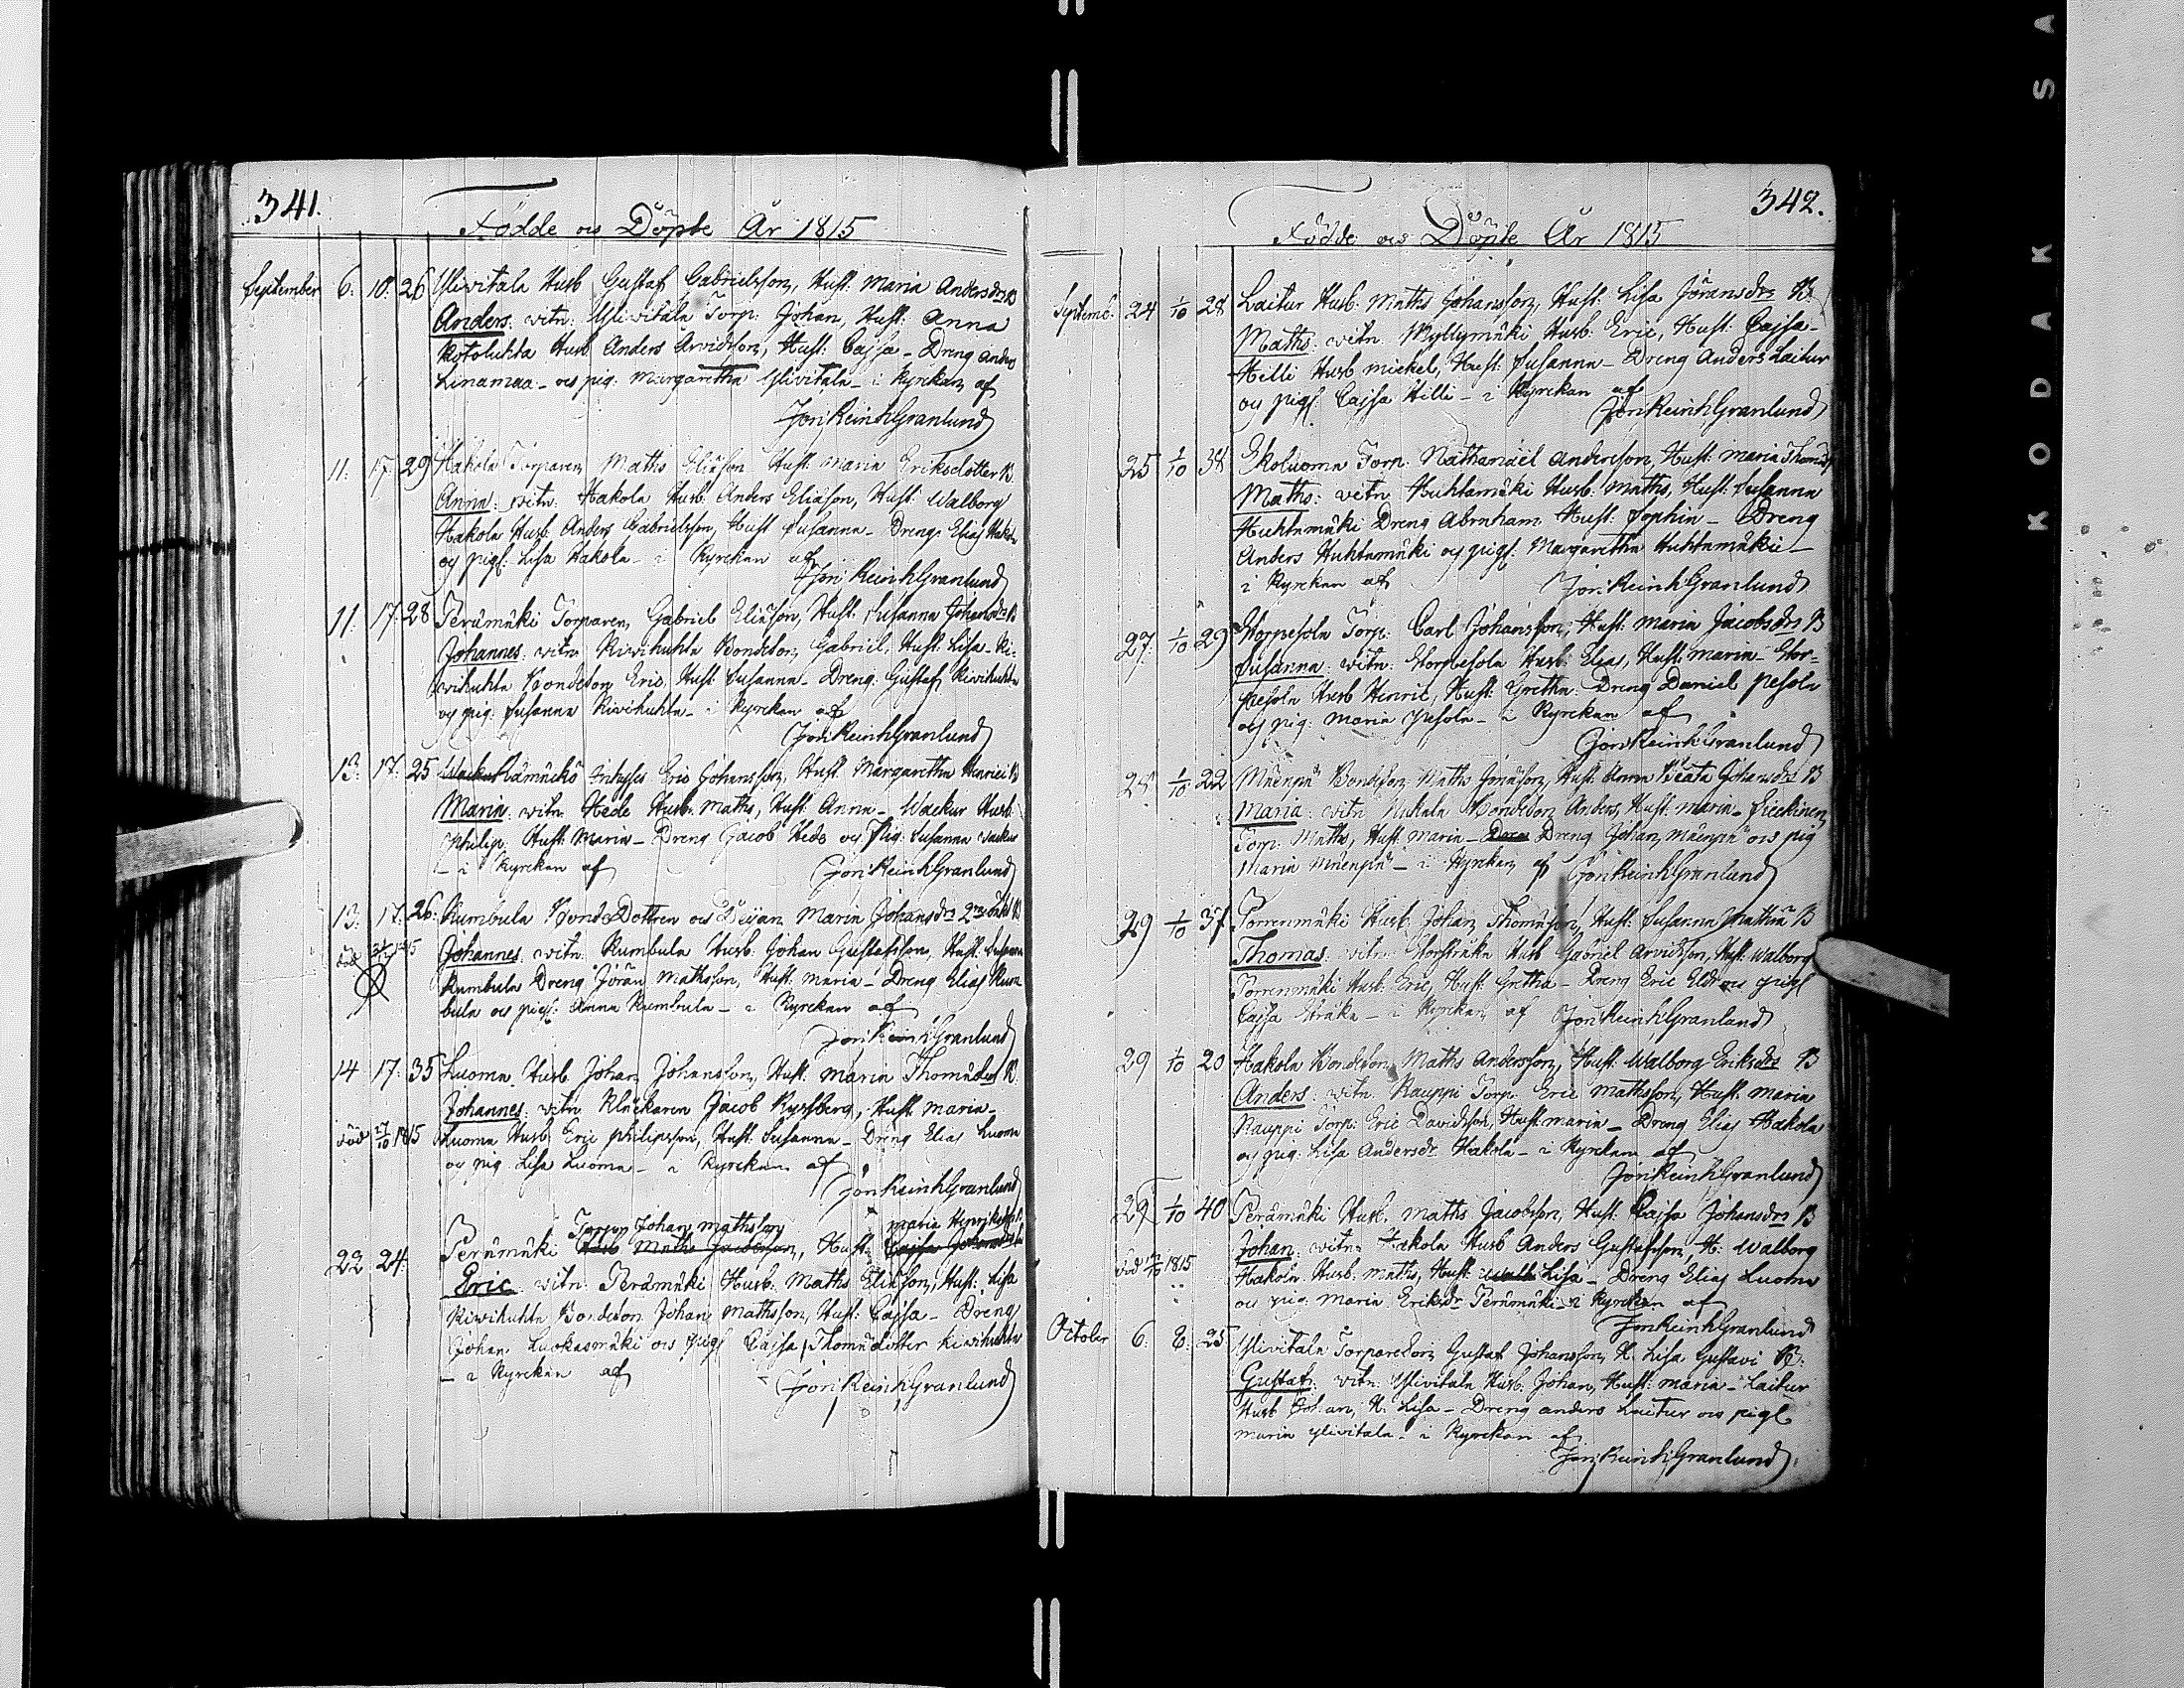 341.
Födde ocs Döpte År 1815
September 6. 10. 26 Ylivitala Husb Gustaf Gabrielsson, Hust: Maria Andersdr B
Anders: vitn: Ylivitala Torp: Johan, Hust: Anna
Kotoluhta Husb Anders Arvidsson, Hust: Cajsa - Dreng Anders
Linamaa - ocs pig: Margaretha Ylivitala - i Kyrckan af
Jon: Reinh Granlund
11. 17. 29 Hakola Torparen Maths Eliäson Hust: Maria Eriksdotter B
Anna: vitn: Hakola Husb: Anders Eliäson, Hust: Walborg
Hakola Husb: Anders Gabrielsson, Hust Susanna - Dreng Elias Hakola
og pigs: Lisa Hakola - i Kyrckan af
Jon: Reinh Granlund
11. 17. 28 Perämäki Torparen Gabriel Eliäson, Hust: Susanna Johansdr B
Johannes: vitn: Kivihuhta Bondeson Gabriel, Hust: Lisa - Ki-
vihuhta Bondeson Eric, Hust: Susanna - Dreng: Gustaf Kivihuhta
og pig: Susanna Kivihuhta - i Kyrckan af
Jon: Reinh Granlund
13. 17. 25 Hämäckö Inhyses Eric Johansson, Hust. Margaretha Henrici B
Maria: vitn Hede Husb: Maths, Hust: Anna - Wackur Husb
Philip: Hust: Maria - Dreng Jacob Hede og Pig: Susanna Wackur
- i Kyrckan af
Jon: Reinh Granlund
13. 17. 26. Rumbula BondeDottren ocs Maria Johansdr 2dra B
död 1815 Johannes: vitn: Rumbula Husb: Johan Gustafsson, Hust: Susanna
Rumbula Dreng Jöran Mathsson, Hust: Maria - Dreng Elias Rum
bula ocs pigs: Anna Rumbula - i Kyrckan af
Jon: Reinh Granlund
14 17. 35 Luoma Husb Johan Johansson, Hust: Maria Thomädr B
Johannes: vitn Kläckaren Jacob Rysberg, Hust Maria -
död 27/10 1815 Luoma Husb: Eric Philipsson, Hust: Susanna - Dreng Elias Luoma
og pig Lisa Luoma - i Kyrckan af
Jon: Reinh Granlund
Torpen Johan Mathsson Maria Henriksdr
22 24. Perämäki Husb Maths Jacobsson, Hust: Cajsa Johansdr
Eric vitn: Perämäki Husb: Maths Eliäson, Hust: Lisa
Kivihuhta Bondeson Johan Mathsson, Hust: Cajsa - Dreng
Johan Luokasmäki ocs pigs Cajsa Thomädotter Kivihuhta
- i Kyrckan af
Jon: Reinh Granlund
342.
Födde ocs Döpte År 1815
Septemb. 24 1/10 28 Laitur Husb: Maths Johansson, Hust: Lisa Jöransdr B
Maths: vitn: Myllymäki Husb: Eric, Hust: Cajsa -
Hilli Husb Mickel, Hust: Susanna - Dreng Anders Laitur
og pigs: Cajsa Hilli - i Kyrckan af
Jon: Reinh Granlund
25 1/10 34 Ekoluoma Torp: Nathanaël Andersson, Hust: Maria Thomädr
Maths: vitn: Huhtamäki Husb: Maths, Hust: Susanna
Huhtamäki Dreng Abraham Hust: Sophia - Dreng
Anders Huhtamäki og pigs: Margaretha Huhtamäki -
i Kyrckan af
Jon: Reinh Granlund
27. 1/10 29 Storpesola Torp: Carl Johansson, Hust: Maria Jacobsdr B
Susanna: vitn: Storpesola Husb: Elias, Hust: Maria - Stor-
pesola Husb Henric, Hust: Gretha: Dreng Daniel Pesola
ocs pig: Maria Pesola - i Kyrckan af
Jon: Reinh Granlund
28 1/10 22 Mäenpä Bondeson Maths Jonäson, Hust Anna Beata Johansdr B
Maria: vitn Bondeson Anders, Hust: Maria -
Torp: Maths, Hust: Maria - Dreng Johan Mäenpä ocs pig
Maria Mäenpä - i Kyrckan af Jon: Reinh Granlund
29 1/10 37 Porrenmäki Husb: Johan Thomäson, Hust: Susanna Matthiä B
Thomas: vitn: Storstråka Husb Gabriel Arvidsson, Hust: Walborg
Porrenmäki Husb: Eric, Hust: Gretha - Dreng Eric ocs pigs
Cajsa Stråka - i Kyrckan af Jon: Reinh Granlund
29 1/10 20 Hakola Bondeson Maths Andersson, Hust: Walborg Eriksdr B
Anders: vitn: Kauppi Torp: Eric Mathsson, Hust: Maria
Kauppi Torp: Eric Davidsson, Hust: Maria - Dreng Elias Hakola
og pig: Lisa Andersdr Hakola - i Kyrckan af
Jon: Reinh Granlund
29 1/10 40 Perämäki Husb: Maths Jacobsson, Hust: Cajsa Johansdr B
Johan: vitn: Hakola Husb Anders Gustafsson, H: Walborg
död 1815 Hakola Husb: Maths, Hust: Lisa - Dreng Elias Luoma
ocs pig: Maria Eriksdr Perämäki - i Kyrckan af
Jon: Reinh Granlund
October 6. 8. 25 Ylivitala Torpareson Gustaf Johansson, H. Lisa Gustavi B
Gustaf: vitn: Ylivitala Husb: Johan, Hust: Maria - Laitur
Husb Johan, H: Lisa - Dreng Anders Laitur ocs pigs
Maria Ylivitala - i Kyrckan af
Jon: Reinh Granlund
KODAK SA